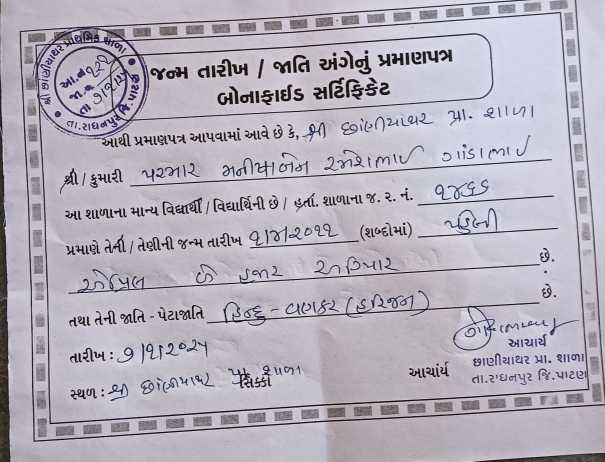 શ્રી છાણીયાથર પ્રાથમિક શાળા
આ.નં
જા.નં
તા.
તા.રાધનપુર જિ.પાટણ
જન્મ તારીખ / જાતિ અંગેનું પ્રમાણપત્ર
બોનાફાઈડ સર્ટિફિકેટ
આથી પ્રમાણપત્ર આપવામાં આવે છે કે, શ્રી છાંણીયાથર પ્રા. શાળા
શ્રી / કુમારી પરમાર મનીષાબેન રમેશભાઈ
આ શાળાના માન્ય વિદ્યાર્થી / વિદ્યાર્થિની છે / હતાં. શાળાના જ. ર. નં. ૧૭૬૬
પ્રમાણે તેની / તેણીની જન્મ તારીખ ૧/૪/૨૦૧૧ (શબ્દોમાં) પહેલી
એપ્રિલ બે હજાર અગિયાર છે.
તથા તેની જાતિ - પેટાજાતિ હિન્દુ - વણકર (હરિજન) છે.
તારીખ : ૭/૧/૨૦૨૫
આચાર્ય
સ્થળ : શ્રી છાંણીયાથર પ્રા શાળા
સિક્કો
આચાર્ય
છાણીયાથર પ્રા. શાળા
તા.રાધનપુર જિ.પાટણ